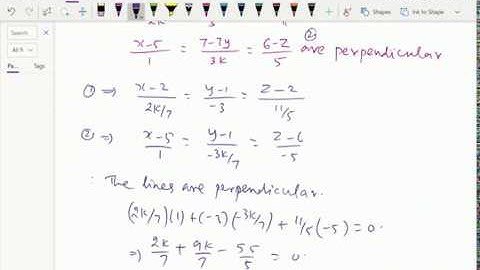 Shapes Ink to Shape
2k 3 11
x-5/1 = 7-7y/3k = 6-z/5 ② are perpendicular
① ⇒ x-2/2k/7 = y-1/-3 = z-2/11/5
② ⇒ x-5/1 = y-1/-3k/7 = z-6/-5
∵ The lines are perpendicular.
(2k/7)(1) + (-3)(-3k/7) + 11/5(-5) = 0.
⇒ 2k/7 + 9k/7 - 55/5 = 0.